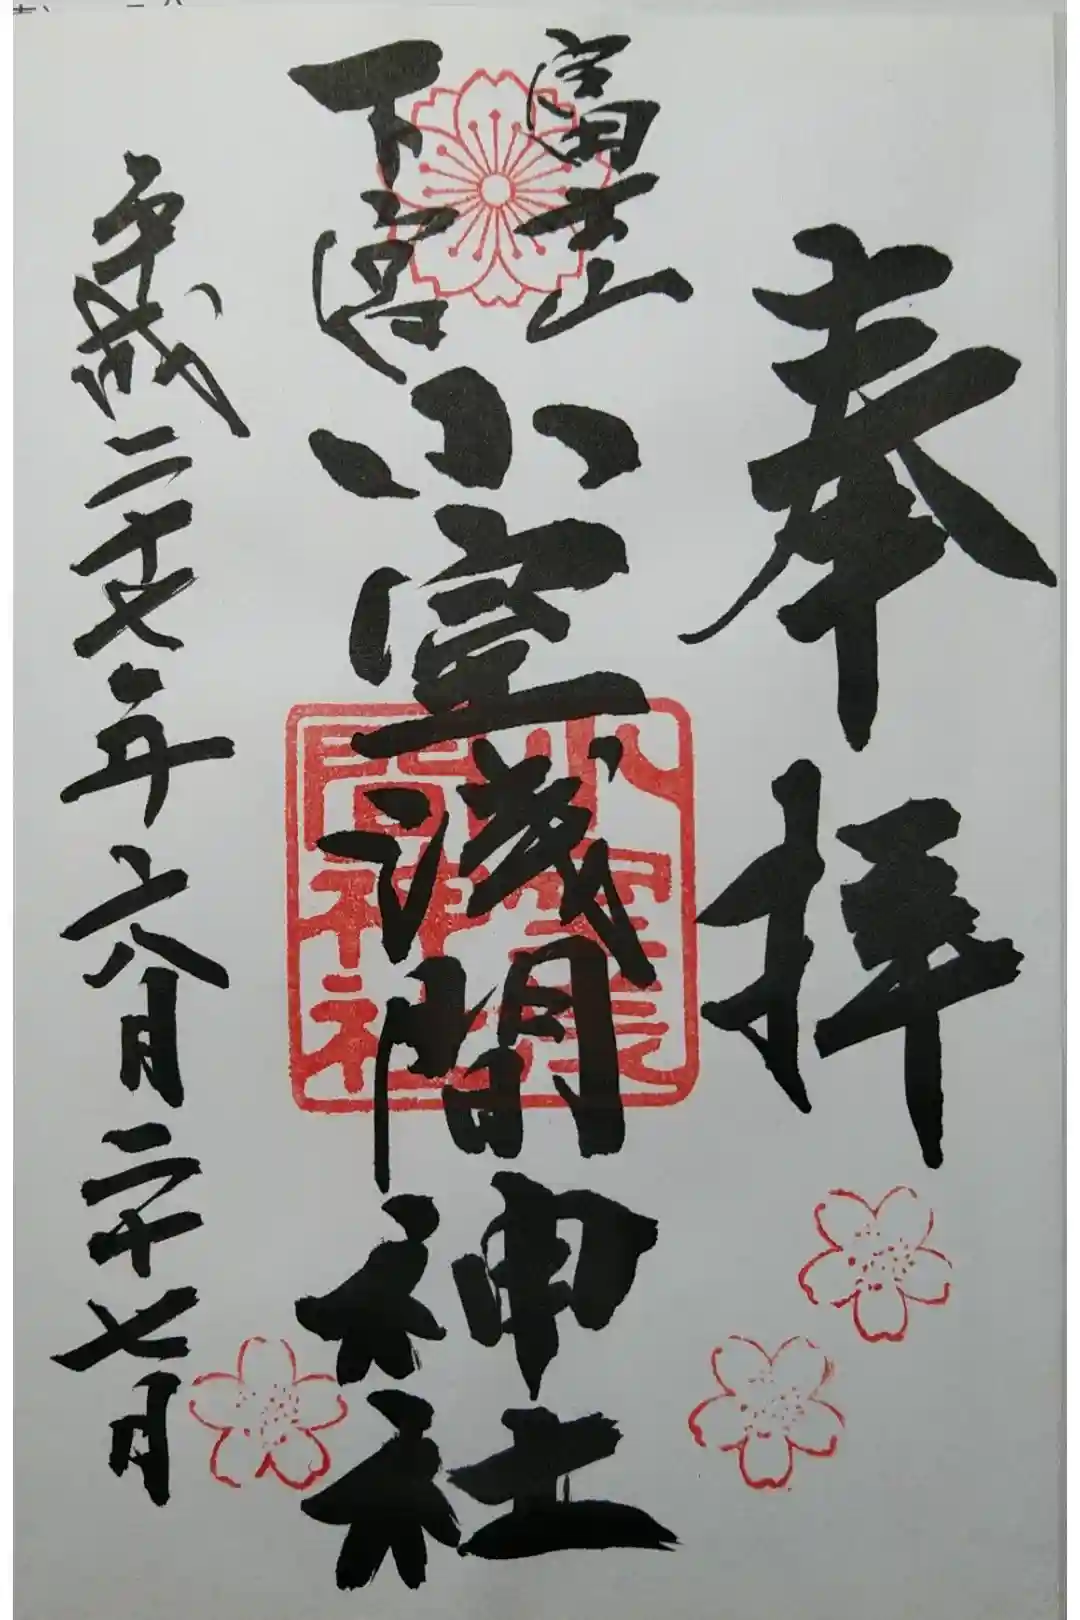 奉拝
富士山
下宮
小室浅間神社
小室浅
間神社
平成二十七年六月二十七日